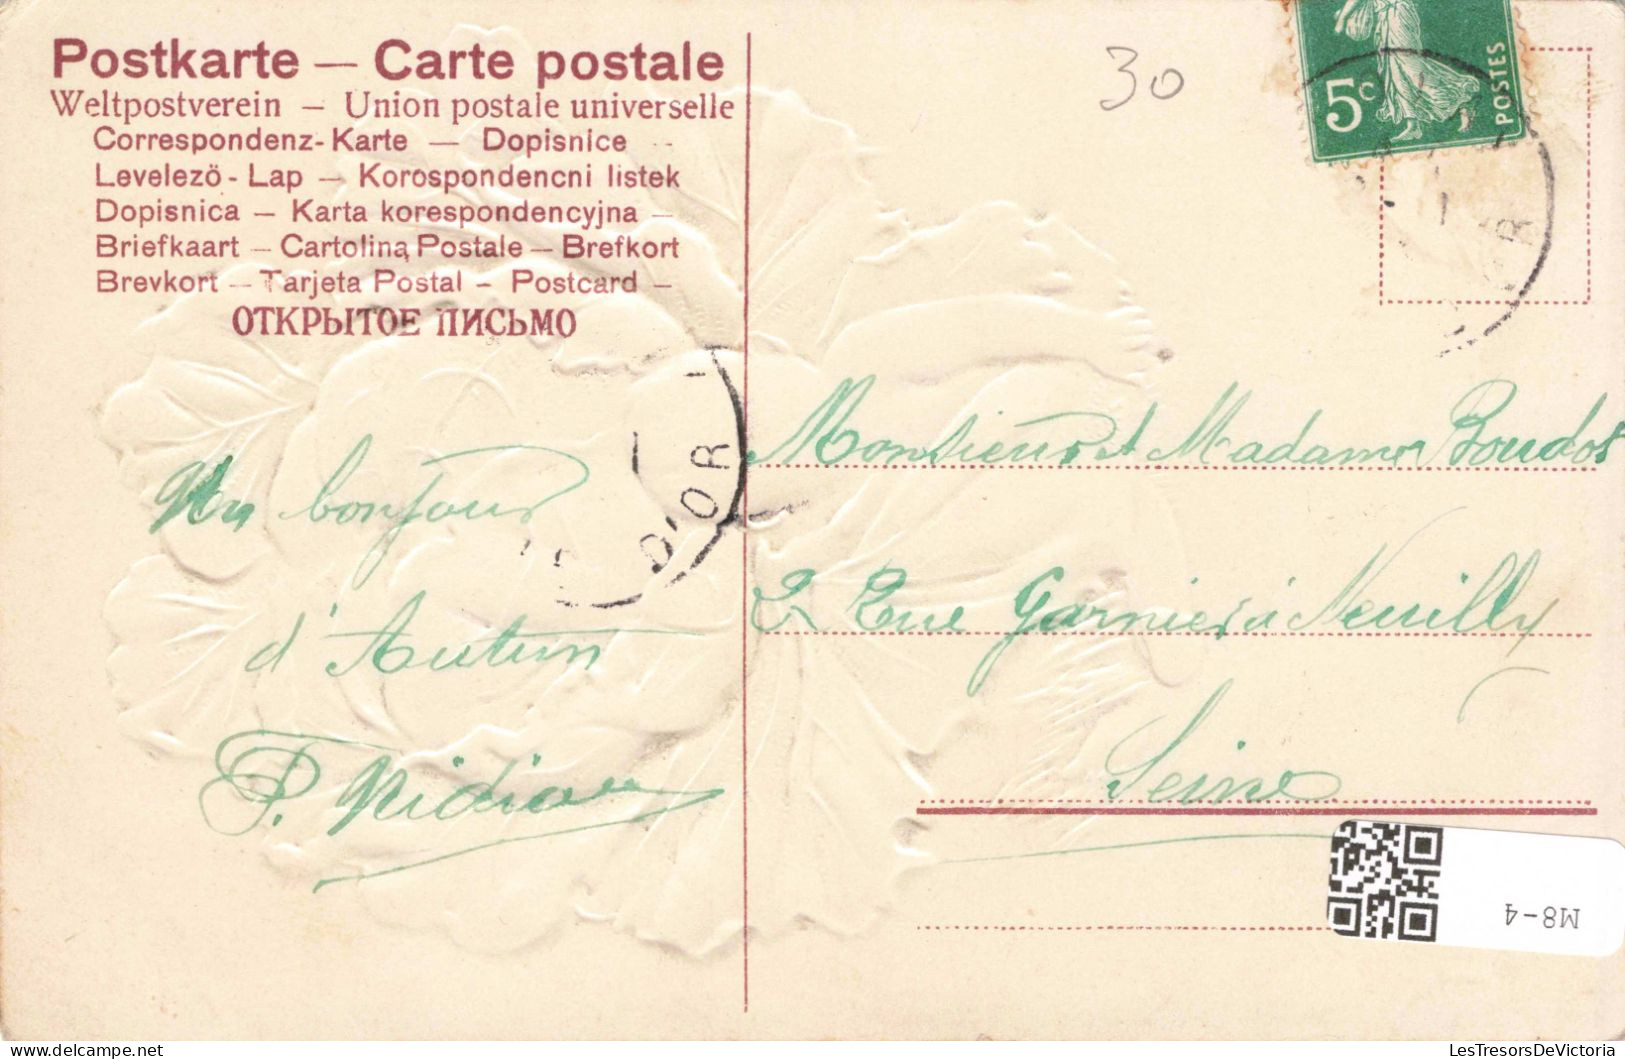 Postkarte — Carte postale
Weltpostverein — Union postale universelle
Correspondenz-Karte — Dopisnice --
Levelezö - Lap — Korospondencni listek
Dopisnica — Karta korespondencyjna —
Briefkaart — Cartolina Postale — Brefkort
Brevkort — Tarjeta Postal - Postcard —
ОТКРЫТОЕ ПИСЬМО
30
5c
POSTES
D'OR
Un bonjour
d'Autun
Monsieur et Madame Boudos
2 Rue Garnier à Neuilly
Seine
M8-4
LesTresorsDeVictoria